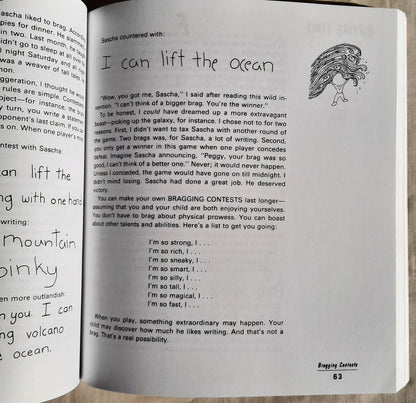 ascha liked to brag. Accor
pies for dinner. He slamme
in two. Last month, he
dn't go to sleep at all over
l night Saturday and all
was a weaver of tall tales.
aggeration, I thought he would
rules are simple. Contestants
oject—for instance, the
y turn, you write a statement
pponent's last claim. If you
s on. When one player's
ontest with Sascha:
an lift the
ng with one hand
writing:
mountain
pinky
en more outlandish:
n you. I can
ng volcano
e ocean.
Sascha countered with:
I can lift the ocean
"Wow, you got me, Sascha," I said after reading this wild in-
vention. "I can't think of a bigger brag. You're the winner."
To be honest, I could have dreamed up a more extravagant
boast—picking up the galaxy, for instance. I chose not to for two
reasons. First, I didn't want to tax Sascha with another round of
the game. Two brags was, for Sascha, a lot of writing. Second,
you only get a winner in this game when one player concedes
defeat. Imagine Sascha announcing, "Peggy, your brag was so
good, I can't think of a better one." Never; it would never happen.
Unless I conceded, the game would have gone on till midnight. I
didn't mind losing. Sascha had done a great job. He deserved
victory.
You can make your own BRAGGING CONTESTS last longer—
assuming that you and your child are both enjoying yourselves.
You don't have to brag about physical prowess. You can boast
about other talents and abilities. Here's a list to get you going:
I'm so strong, I . . .
I'm so rich, I . . .
I'm so sneaky, I . . .
I'm so smart, I . . .
I'm so silly, I . . .
I'm so tall, I . . .
I'm so magical, I . . .
I'm so fast, I . . .
When you play, something extraordinary may happen. Your
child may discover how much he likes writing. And that's not a
brag. That's a real possibility.
Bragging Contests
63